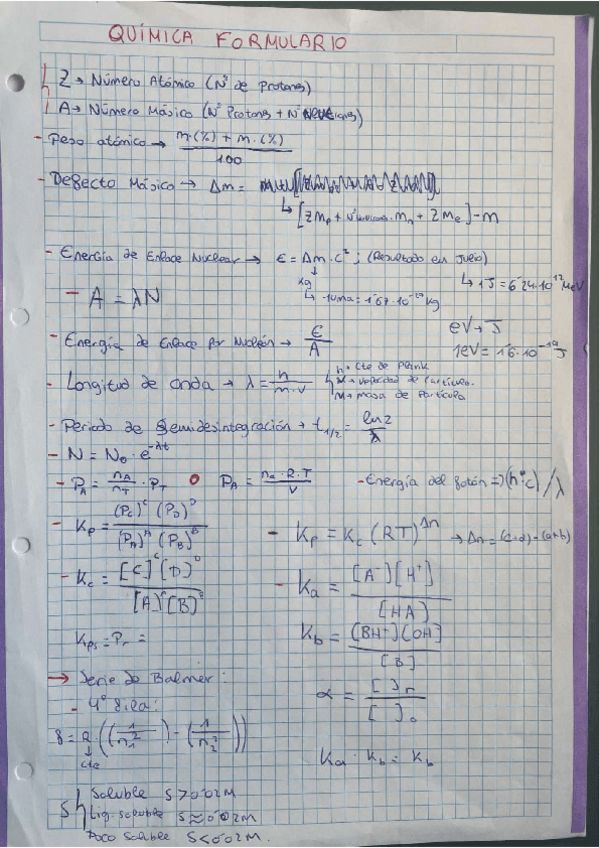 QUÍMICA FORMULARIO
Z → Número Atómico (Nº de Protones)
A → Número Másico (Nº Protones + Nº Neutrones)
- Peso atómico → m.(%) + m.(%) / 100
- Defecto Másico → Δm =
↳ [Zmp + Nneutrones.mn + Zme] - m
- Energía de Enlace Nuclear → E = Δm.c² ; (Resultado en Julio)
↓ Kg
↳ 1J = 6'24.10¹² MeV
↳ 1uma = 1'67.10⁻²⁷ Kg
- A = λN
eV → J
- Energía de Enlace por Nucleón → E/A
1eV = 1'6.10⁻¹⁹ J
- Longitud de onda → λ = h / m.v
h = Cte de Plank
v = velocidad de Partícula.
m = masa de Partícula
- Periodo de Semidesintegración → t1/2 = ln2 / λ
- N = N₀ . e^-λt
- PA = nA/nT . PT o PA = na.R.T / V
- Energía del fotón => (h.c)/λ
- Kp = (Pc)^c (PD)^D / (PA)^A (PB)^B
- Kp = Kc (RT)^Δn → Δn = (c+d) - (a+b)
- Kc = [C]^c [D]^D / [A]^a [B]^b
- Ka = [A⁻][H⁺] / [HA)
Kps = Pr =
Kb = (BH⁺)(OH] / [B]
→ Serie de Balmer:
- 4º fila:
α = [ ]r / [ ]o
= R . ((1/n₁²) - (1/n₂²))
↓ cte
Ka . Kb = Kb
S { Soluble S > 0'02M
Lig. soluble S ≈ 0'02M
Poco soluble S < 0'02M.